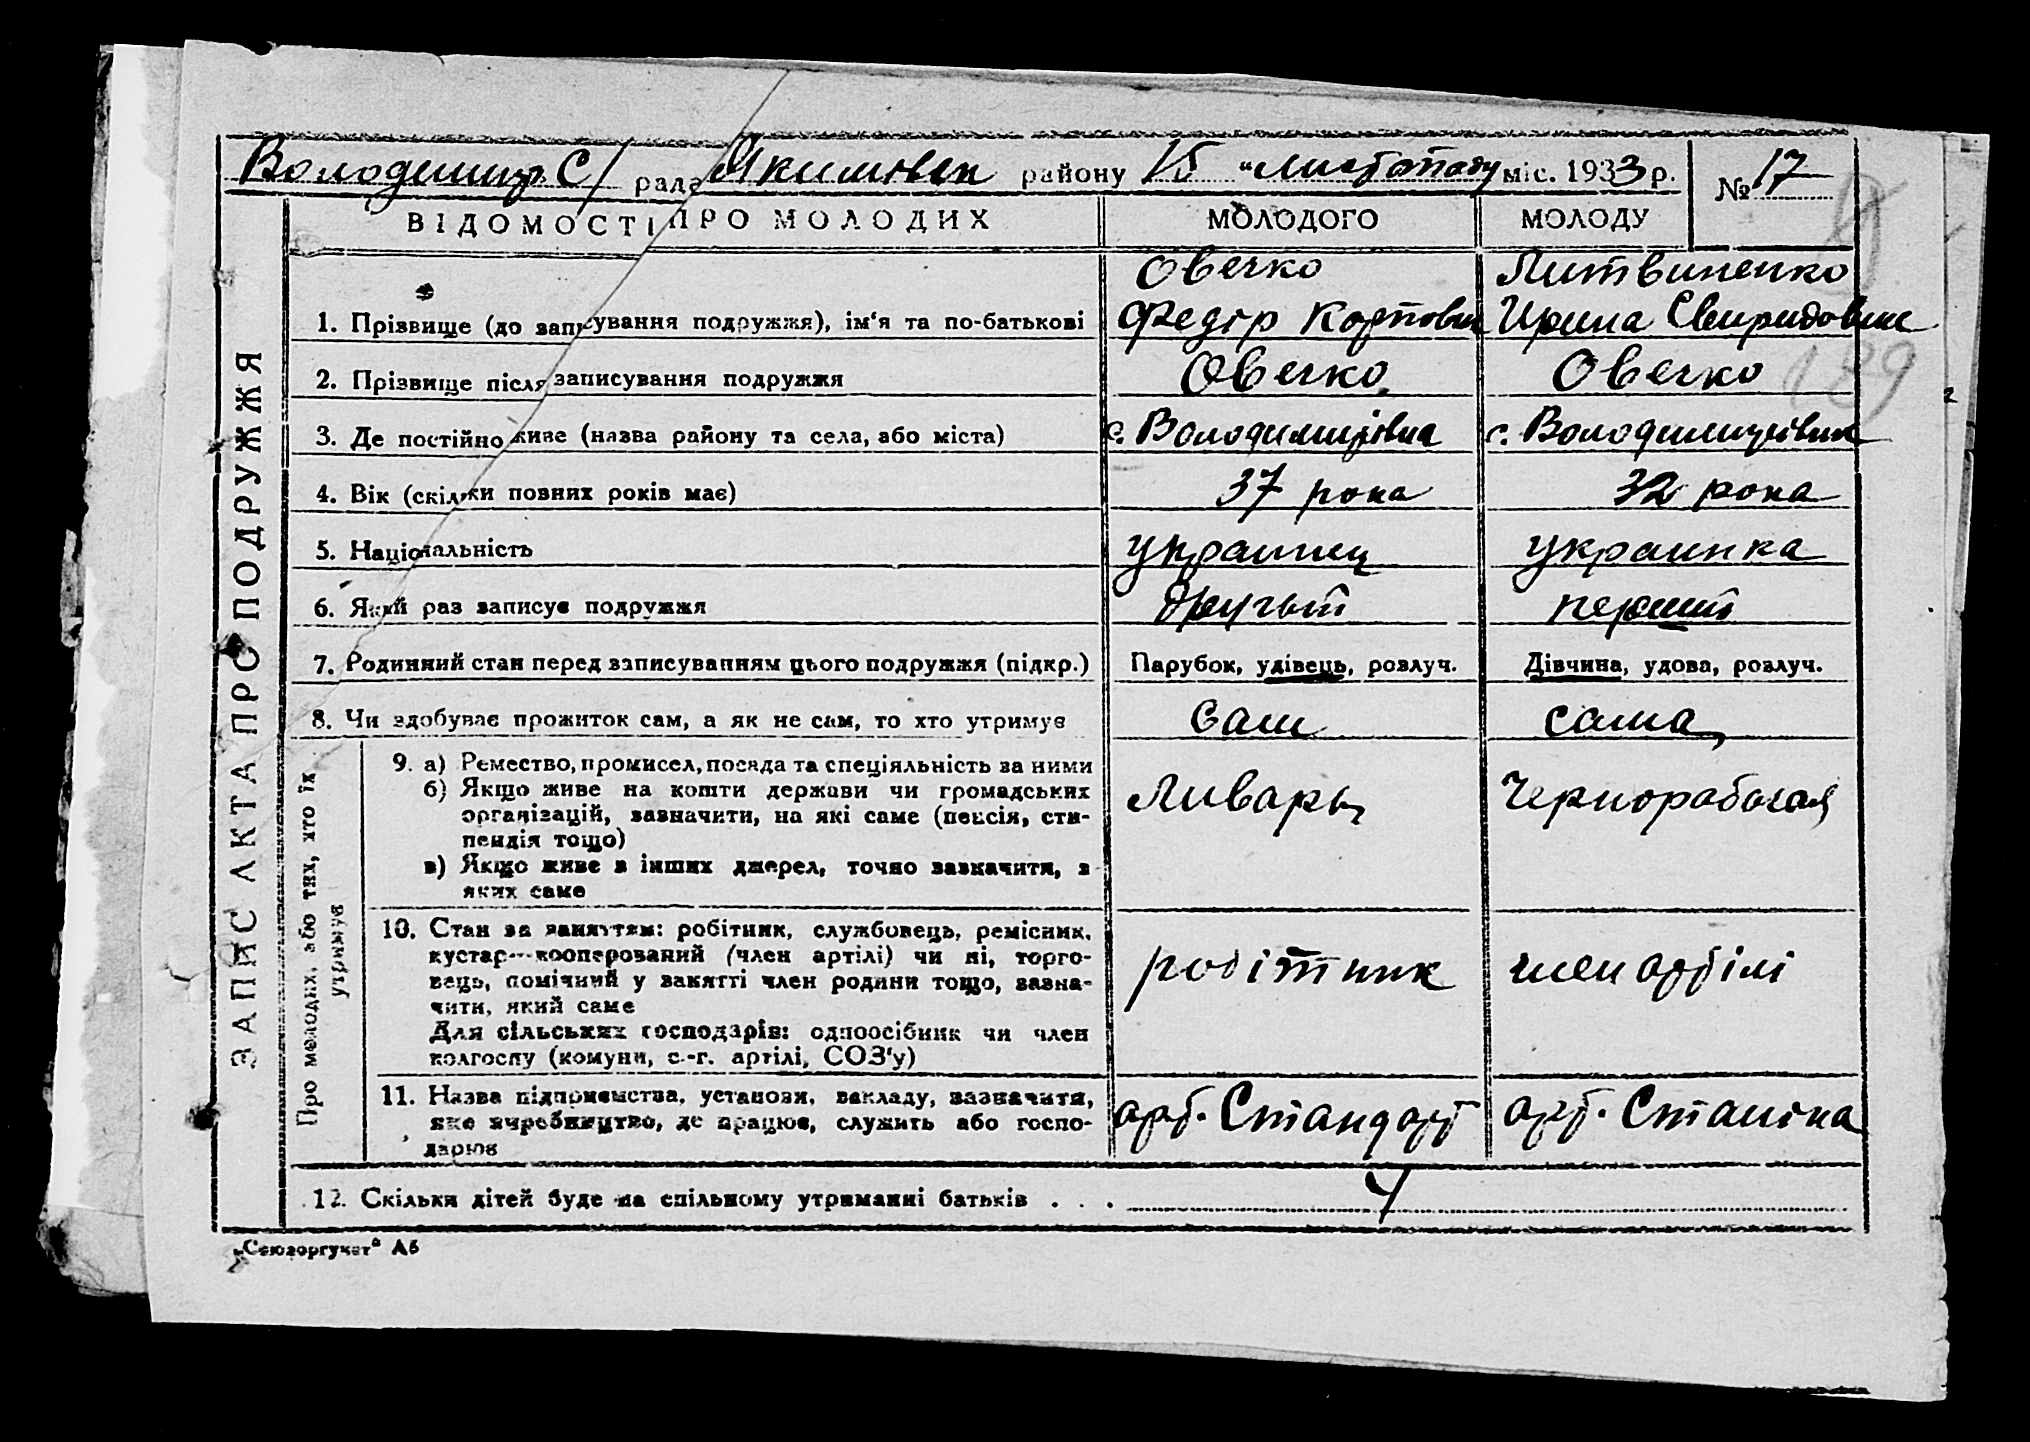 Володимир С/ рада Якимівськ району 15 "листопаду міс. 1933 р. № 17
ВІДОМОСТІ ПРО МОЛОДИХ МОЛОДОГО МОЛОДУ
ЗАПИС АКТА ПРО ПОДРУЖЖЯ
Овечко Литвиненко
1. Прізвище (до записування подружжя), ім'я та по-батькові Федір Карпович Ирина Свиридовна
2. Прізвище після записування подружжя Овечко Овечко
189
3. Де постійно живе (назва району та села, або міста) с. Володимирівка с. Володимирівка
4. Вік (скільки повних років має) 37 рока 32 рока
5. Національність украинец украинка
6. Який раз записує подружжя другий перший
7. Родинний стан перед записуванням цього подружжя (підкр.) Парубок, удівець, розлуч. Дівчина, удова, розлуч.
8. Чи здобуває прожиток сам, а як не сам, то хто утримує сам сама
Про молодих, або тих, хто їх
утримує
9. а) Ремество, промисел, посада та спеціяльність за ними
б) Якщо живе на кошти держави чи громадських Ливарь Чернорабочая
організацій, зазначити, на які саме (пенсія, сти-
пендія тощо)
в) Якщо живе з інших джерел, точно зазначити, з
яких саме
10. Стан за заняттям: робітник, службовець, ремісник,
кустар—кооперований (член артілі) чи ні, торго- робітник член артілі
вець, помічний у занятті член родини тощо, зазна-
чити, який саме
Для сільських господарів: одноосібник чи член
колгоспу (комуни, с.-г. артілі, СОЗ'у)
11. Назва підприємства, установи, закладу, зазначити,
яке виробництво, де працює, служить або госпо- арт. Стандарт арт. Сталіна
дарює
12. Скільки дітей буде на спільному утриманні батьків . . . 4
„Союзоргучет" А5